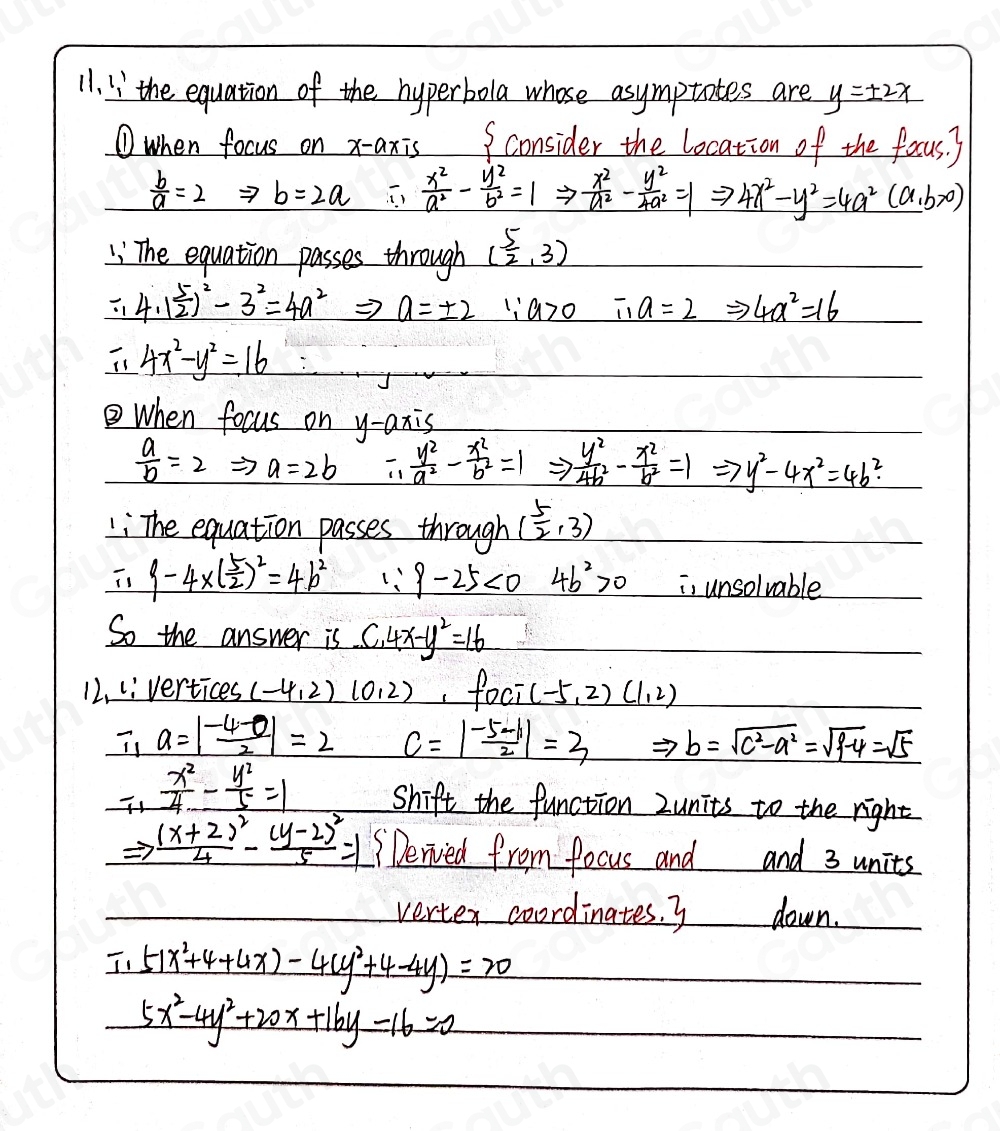 11. ∵ the equation of the hyperbola whose asymptotes are y=±2x
① When focus on x-axis {consider the location of the focus.}
b/a = 2 ⇒ b=2a ∴ x²/a² - y²/b² = 1 ⇒ x²/a² - y²/4a² = 1 ⇒ 4x²-y²=4a² (a,b>0)
∵ The equation passes through (5/2, 3)
∴ 4·(5/2)² - 3² = 4a² ⇒ a=±2 ∵ a>0 ∴ a=2 ⇒ 4a²=16
∴ 4x²-y²=16
② When focus on y-axis
a/b = 2 ⇒ a=2b ∴ y²/a² - x²/b² = 1 ⇒ y²/4b² - x²/b² = 1 ⇒ y²-4x²=4b²
∵ The equation passes through (5/2, 3)
∴ 9-4×(5/2)² = 4b² ∵ 9-25<0 4b²>0 ∴ unsolvable
So the answer is C.4x-y²=16
12. ∵ vertices (-4,2) (0,2) , foci (-5,2) (1,2)
∴ a=|-4-0/2| = 2 c=|-5-1/2| = 3 ⇒ b=√c²-a² = √9-4 = √5
∴ x²/4 - y²/5 = 1 Shift the function 2units to the right
⇒ (x+2)²/4 - (y-2)²/5 = 1 {Derived from focus and and 3 units
vertex coordinates.} down.
∴ 5(x²+4+4x) - 4(y²+4-4y) = 20
5x²-4y²+20x+16y-16=0
Gauth